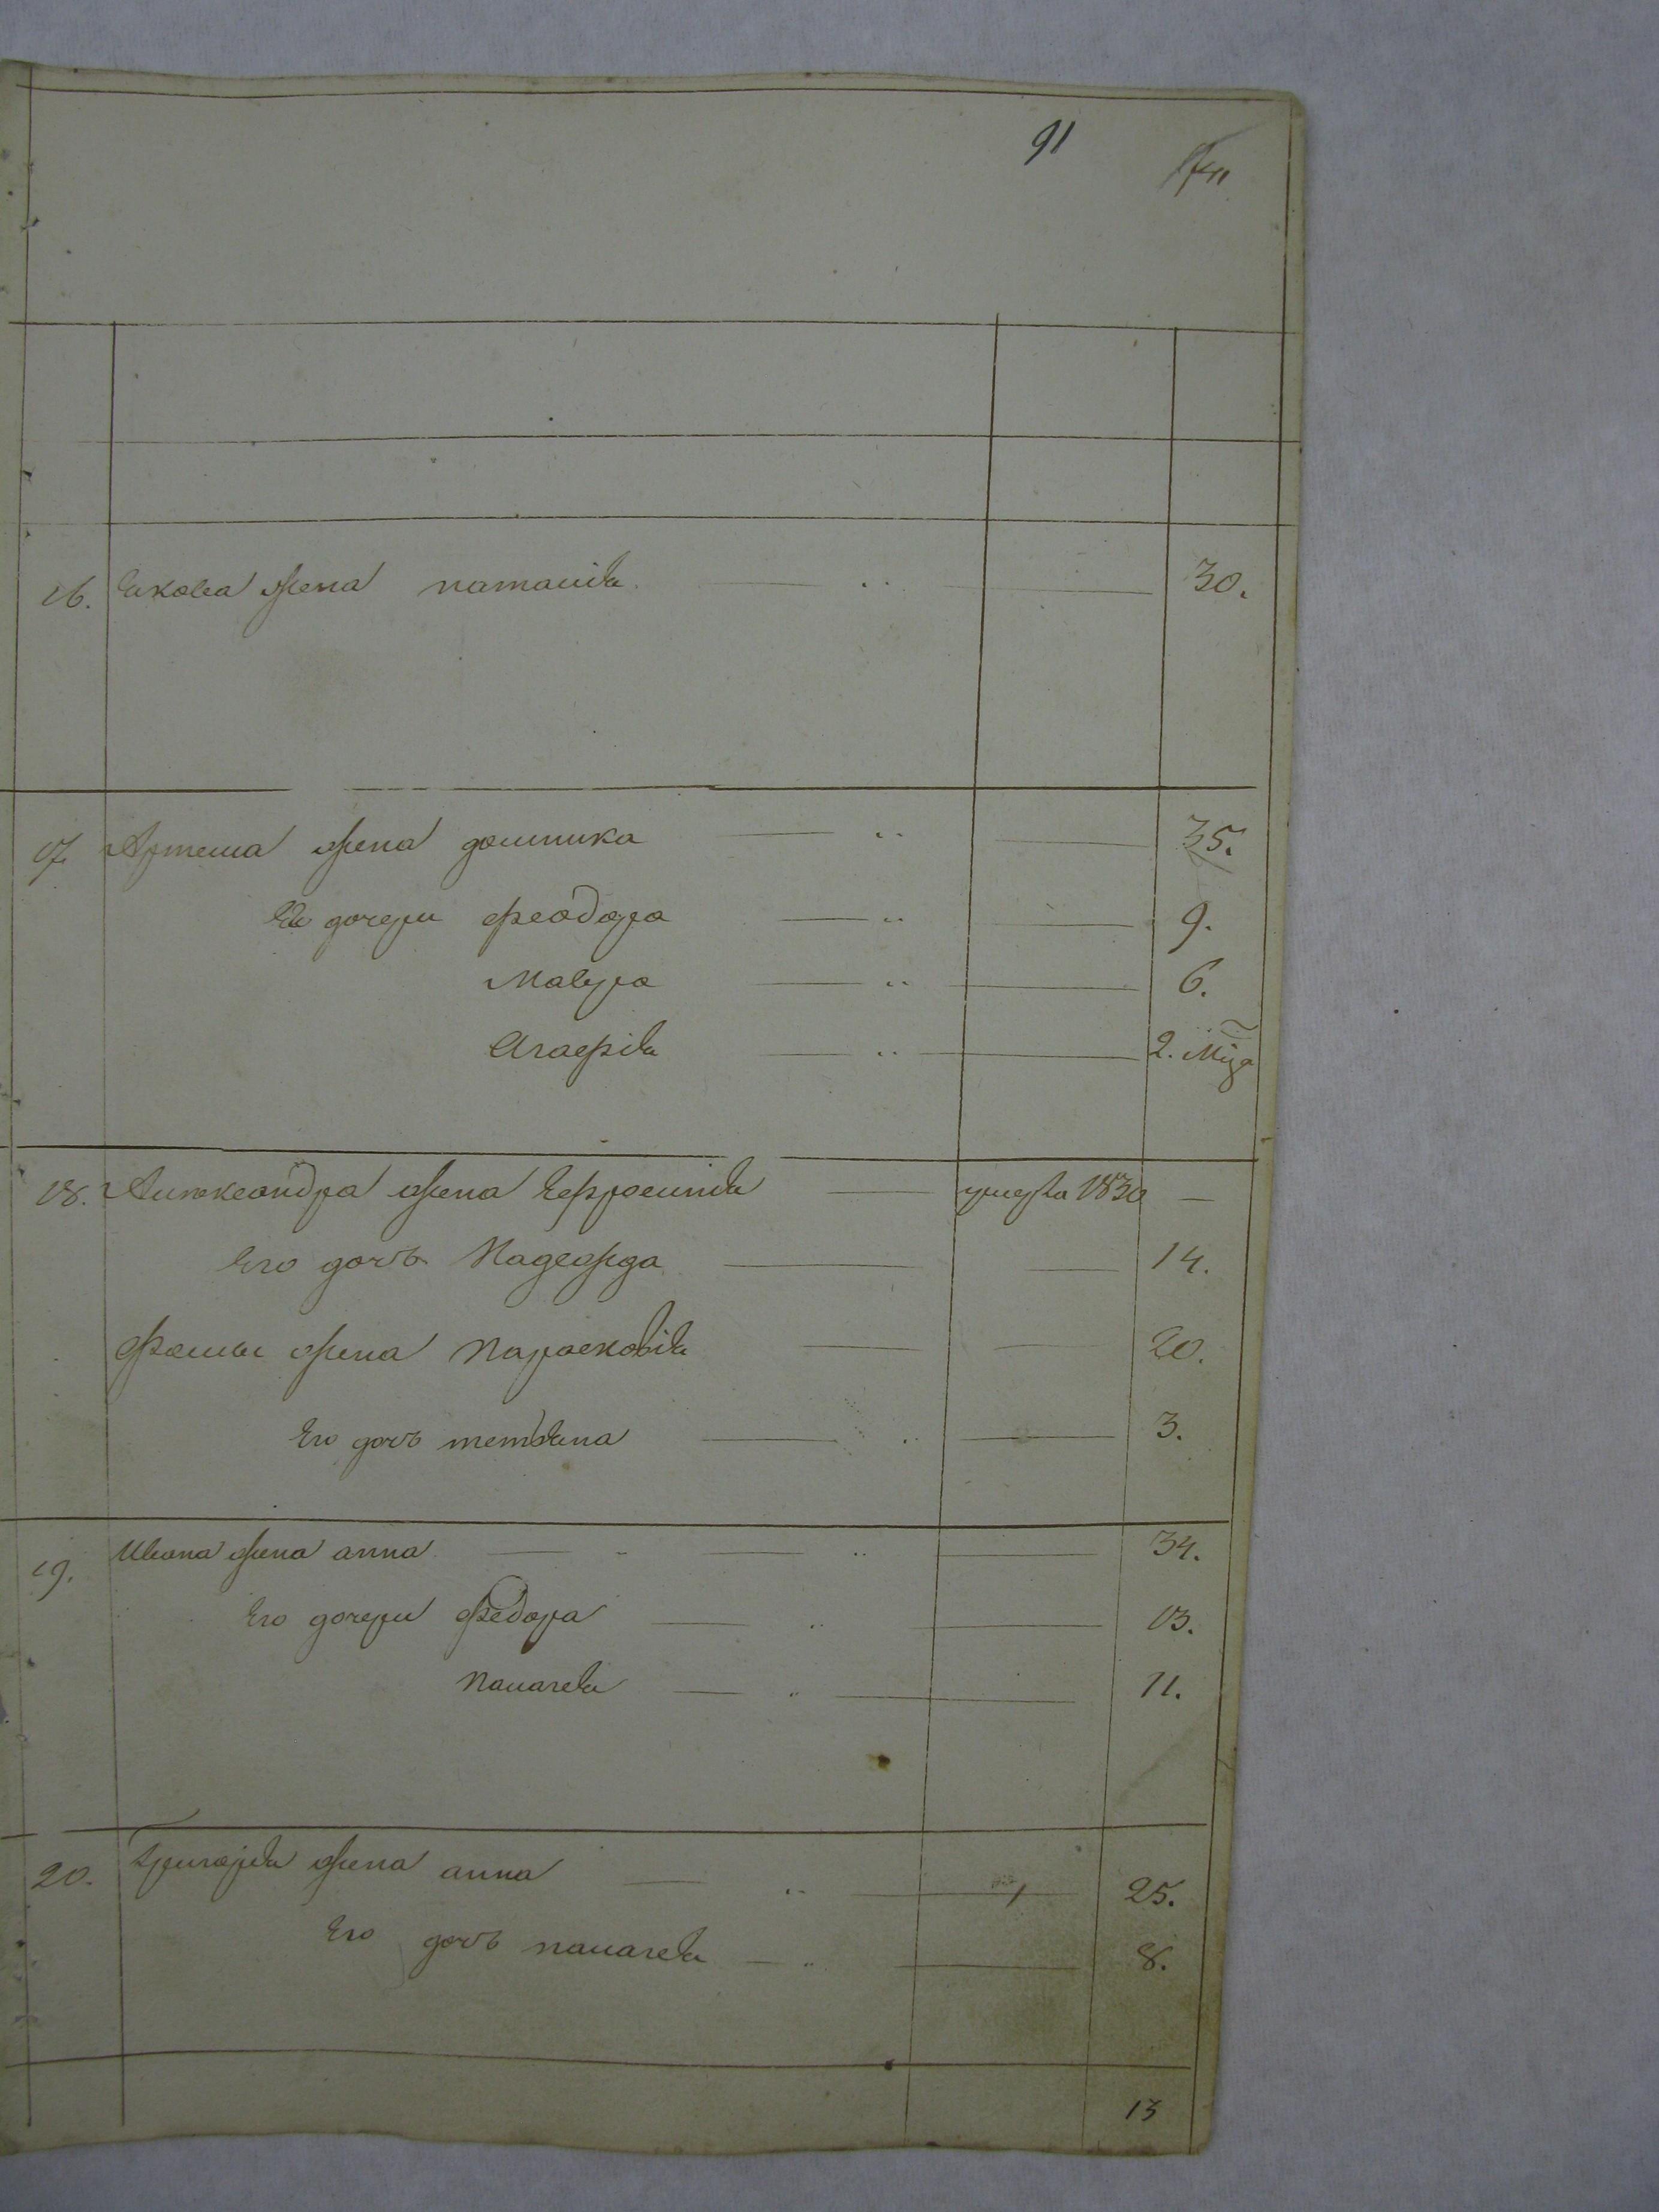 91
16. Якова жена наталия 30.
17. Артема жена домника 35.
Его дочери Феодора 9.
Мавра 6.
Агафия 2. мца
18. Александра жена Ефросиния умерла 1830 —
Его дочь Надежда 14.
Фомы жена Парасковия 20.
Его дочь татьяна 3.
19. Ивана жена анна 34.
Его дочери Федора 13.
Палагея 11.
20. Григорья жена анна 25.
Его дочь палагея 8.
13